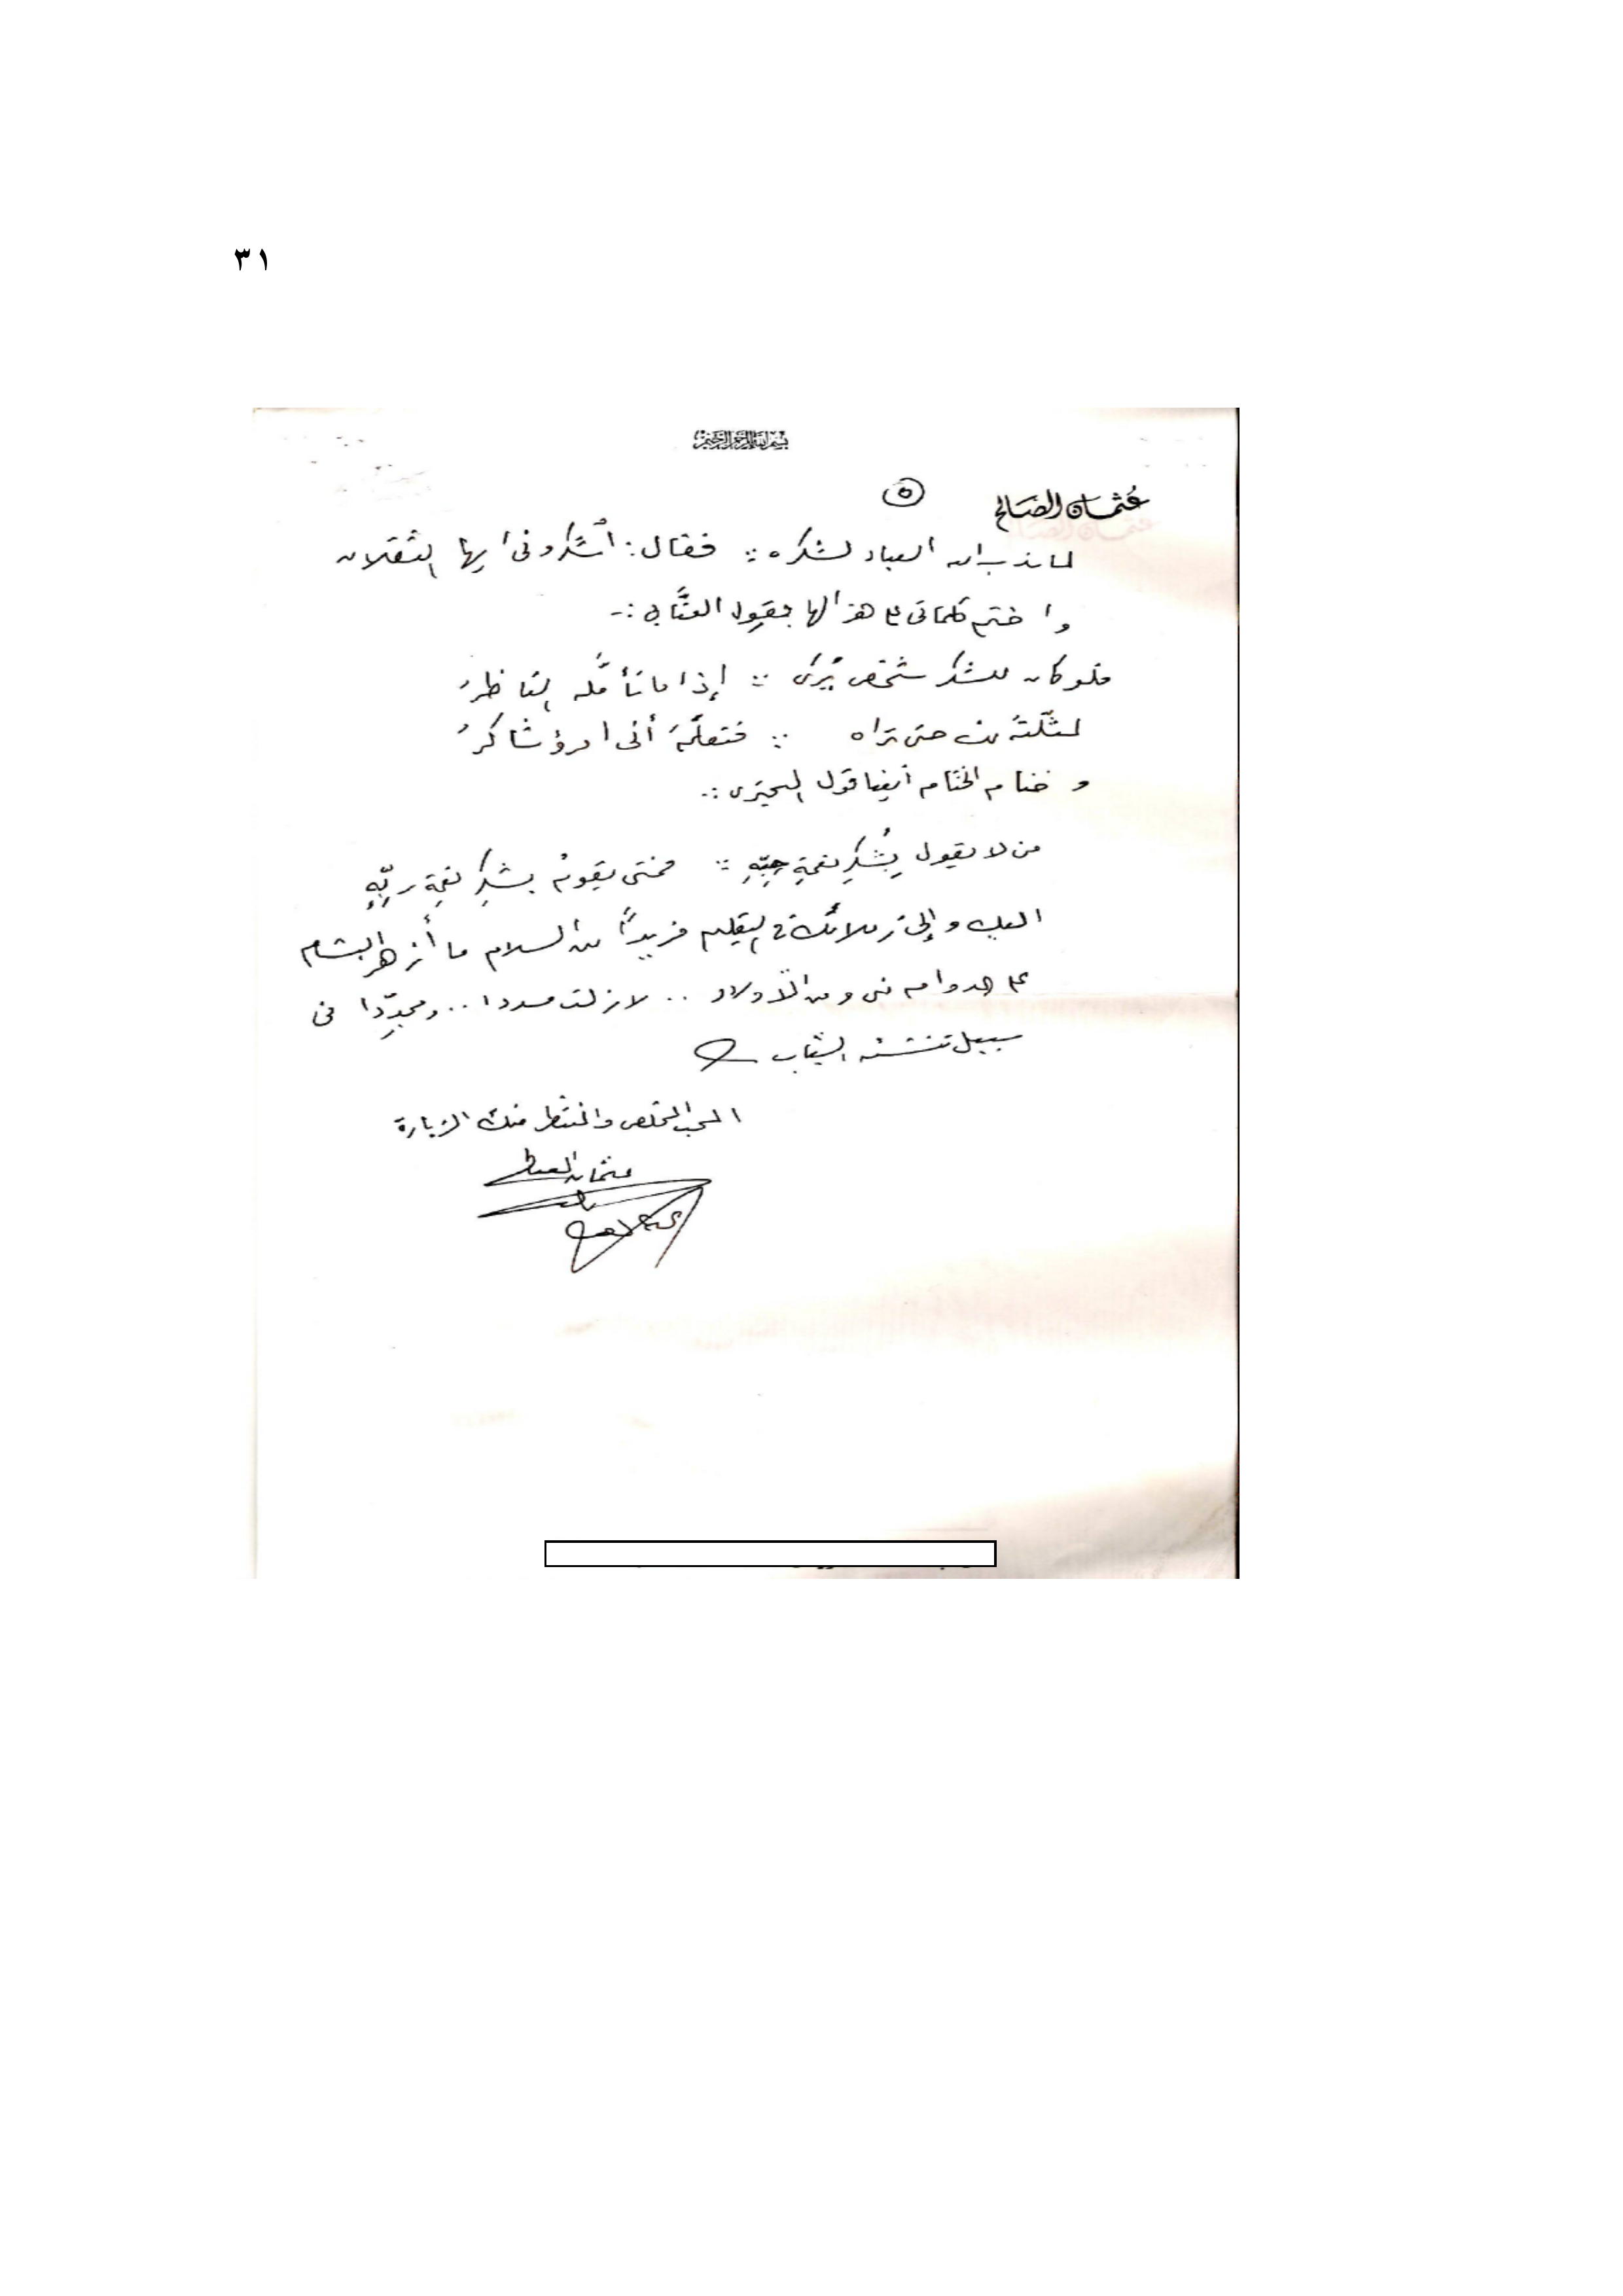 ٣١
بسم الله الرحمن الرحيم
عُثمان الصَالح
٥
لما ندب الله العباد لشكره :: فقال: اشكروني ايها الثقلان
واختم كلماتي هذه بقول العتَّابي :-
فلو كان للشكر شخص يُرى :: إذا ما تأمَّله الناظرُ
لمثّلتُه لك حتى تراه :: فتعلَمَ أني امرؤ شاكرُ
و ختام الختام أيضا قول البحتري :-
من لا يقوم بِشُكرِ نعمةِ حِبِّهِ :: فمتى يقومُ بشكرِ نعمةِ ربِّهِ
اليك و إلى زملائك في التعليم مزيداً من السلام ما أزهر البشام
على الدوام مني ومن الأولاد .. لا زلت مسددا .. ومجدِّدا في
سبيل تنشئة الشباب
المحب المخلص والمنتظر منك الزيارة
عثمان الصالح